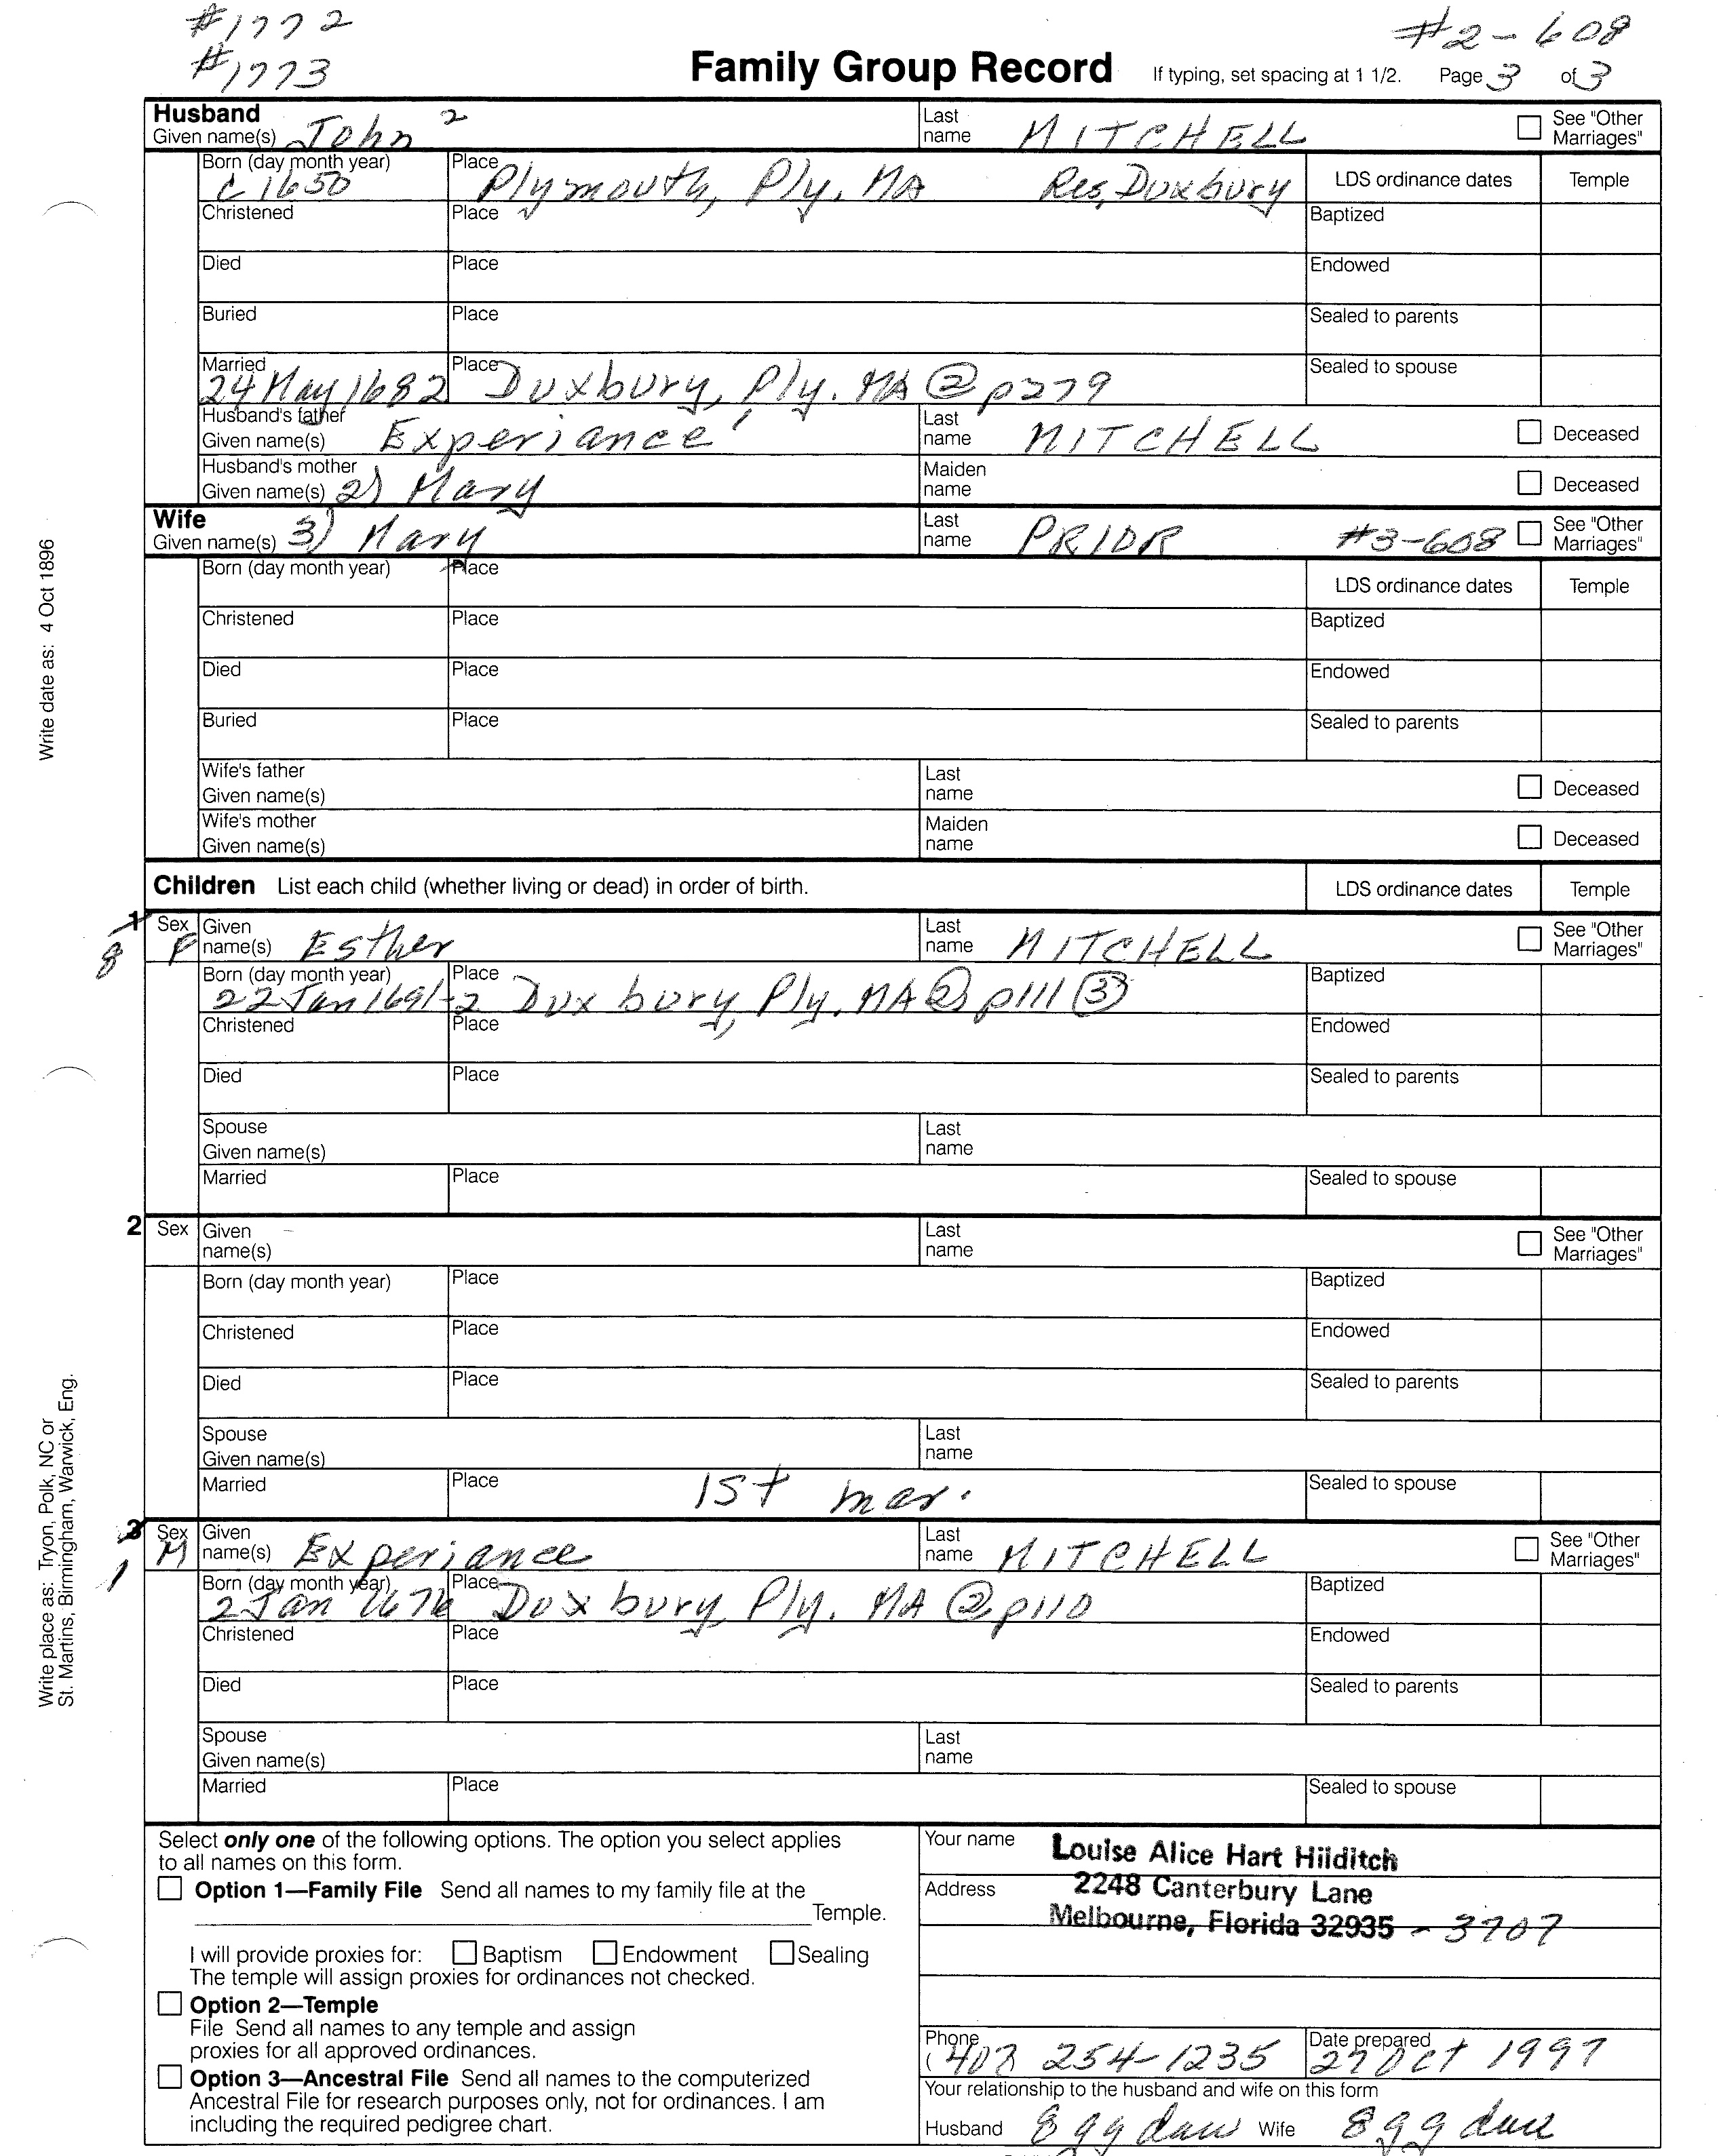 #1772
#1773
#2-608
Family Group Record If typing, set spacing at 1 1/2. Page 3 of 3
Husband
Given name(s) John 2 Last name MITCHELL See "Other Marriages"
Born (day month year) C 1650 Place Plymouth, Ply. MA Res, Duxbury LDS ordinance dates Temple
Christened Place Baptized
Died Place Endowed
Buried Place Sealed to parents
Married 24 May 1682 Place Duxbury, Ply. MA @ p279 Sealed to spouse
Husband's father Given name(s) Experiance ' Last name MITCHELL Deceased
Husband's mother Given name(s) 2) Mary Maiden name Deceased
Wife
Given name(s) 3) Mary Last name PRIOR #3-608 See "Other Marriages"
Born (day month year) Place LDS ordinance dates Temple
Christened Place Baptized
Died Place Endowed
Buried Place Sealed to parents
Wife's father Given name(s) Last name Deceased
Wife's mother Given name(s) Maiden name Deceased
Children List each child (whether living or dead) in order of birth. LDS ordinance dates Temple
1 8 Sex F Given name(s) Esther Last name MITCHELL See "Other Marriages"
Born (day month year) 22 Jan 1691-2 Place Duxbury, Ply. MA ② p111 ③ Baptized
Christened Place Endowed
Died Place Sealed to parents
Spouse Given name(s) Last name
Married Place Sealed to spouse
2 Sex Given name(s) Last name See "Other Marriages"
Born (day month year) Place Baptized
Christened Place Endowed
Died Place Sealed to parents
Spouse Given name(s) Last name
Married Place 1st mar. Sealed to spouse
3 1 Sex M Given name(s) Experiance Last name MITCHELL See "Other Marriages"
Born (day month year) 2 Jan 1676 Place Duxbury, Ply. MA ② p110 Baptized
Christened Place Endowed
Died Place Sealed to parents
Spouse Given name(s) Last name
Married Place Sealed to spouse
Select only one of the following options. The option you select applies
to all names on this form.
Option 1—Family File Send all names to my family file at the
Temple.
I will provide proxies for: Baptism Endowment Sealing
The temple will assign proxies for ordinances not checked.
Option 2—Temple
File Send all names to any temple and assign
proxies for all approved ordinances.
Option 3—Ancestral File Send all names to the computerized
Ancestral File for research purposes only, not for ordinances. I am
including the required pedigree chart.
Your name Louise Alice Hart Hilditch
Address 2248 Canterbury Lane
Melbourne, Florida 32935 - 3707
Phone (407 254-1235 Date prepared 27 Oct 1997
Your relationship to the husband and wife on this form
Husband 8 gg dau Wife 8 gg dau
Write date as: 4 Oct 1896
Write place as: Tryon, Polk, NC or
St. Martins, Birmingham, Warwick, Eng.